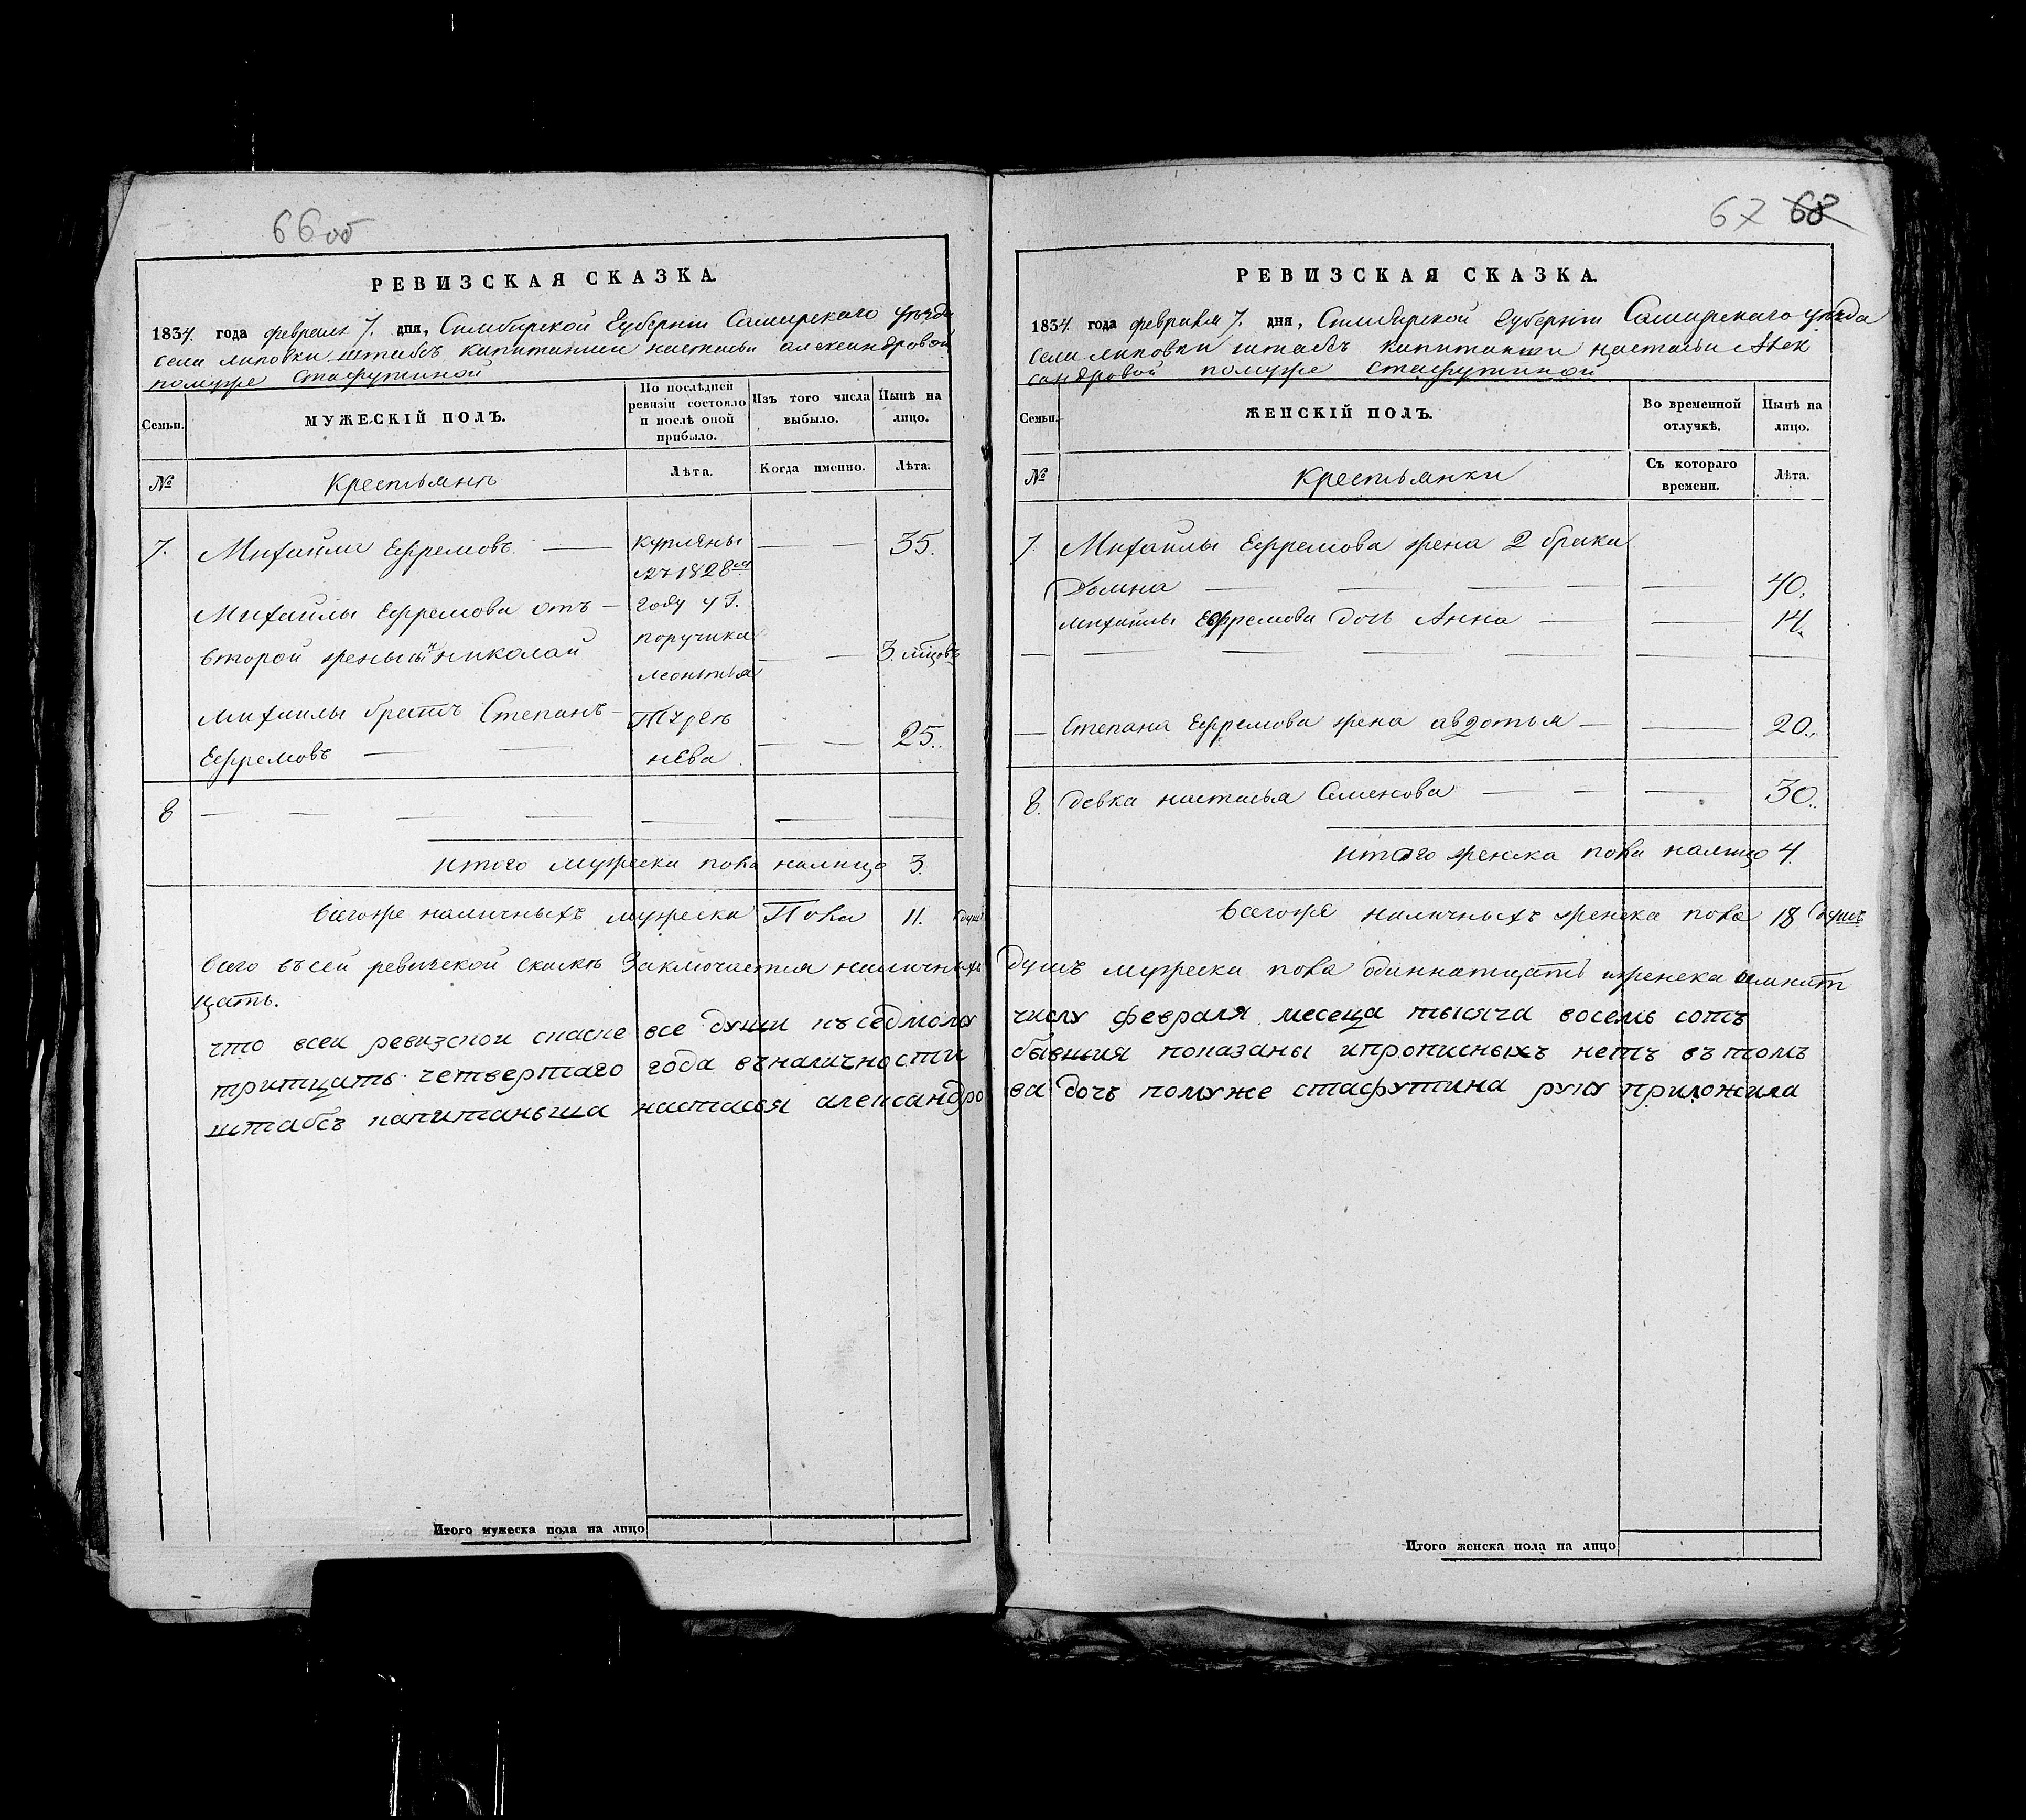 66 об
РЕВИЗСКАЯ СКАЗКА.
1834. года февраля 7. дня, Симбирской Губернiи Самарскаго уѣзда
села липовки штабсъ капитанши настасьи александровой
помуже Стафутиной
Семьи.
МУЖЕСКIЙ ПОЛЪ.
По послѣдней
ревизiи состояло
и послѣ оной
прибыло.
Изъ того числа
выбыло.
Нынѣ на
лицо.
№
Крестьянъ
Лѣта.
Когда именно.
Лѣта.
7. Михайла Ефремовъ — куплены — — 35.
въ 1828м
Михайлы Ефремова отъ — году у Г.
второй жены сынъ николай поручика — — 3. мѣсцовъ
леонтья
михайлы братъ Степанъ — Тургенева
Ефремовъ — — — — 25.
8 — — — — — — —
итого мужеска пола налицо 3.
всегоже наличныхъ мужеска Пола 11. душъ
всего въсей ревизской сказкѣ Заключается наличныхъ
цать.
что всеи ревизскои сказке все души къседмому
тритцать четвертаго года въналичности
штабсъ капитанша настасья александро
67 68
РЕВИЗСКАЯ СКАЗКА.
1834. года февраля 7. дня, Симбирской Губернiи Самарскаго уѣзда
села липовки штабсъ капитанши настасьи Алек
сандровой помуже стафутиной
Семьи.
ЖЕНСКIЙ ПОЛЪ.
Во временной
отлучкѣ.
Нынѣ на
лицо.
№
Крестьянки
Съ котораго
времени.
Лѣта.
7. Михайлы Ефремова жена 2 брака
Домна — — — — — 40.
михайлы Ефремова дочь Анна — — 14.
— — — — — — —
— Степана Ефремова жена авдотья — — 20.
8. девка настасья Семенова — — — 30.
итого женска пола налицо 4.
всегоже наличныхъ женска пола 18 душъ
душъ мужеска пола одиннатцать иженска осмнат
числу февраля месеца тысяча восемь сотъ
бывшия показаны ипрописныхъ нетъ въ томъ
ва дочь помуже стафутина руку приложила
Итого мужеска пола на лицо
Итого женска пола на лицо